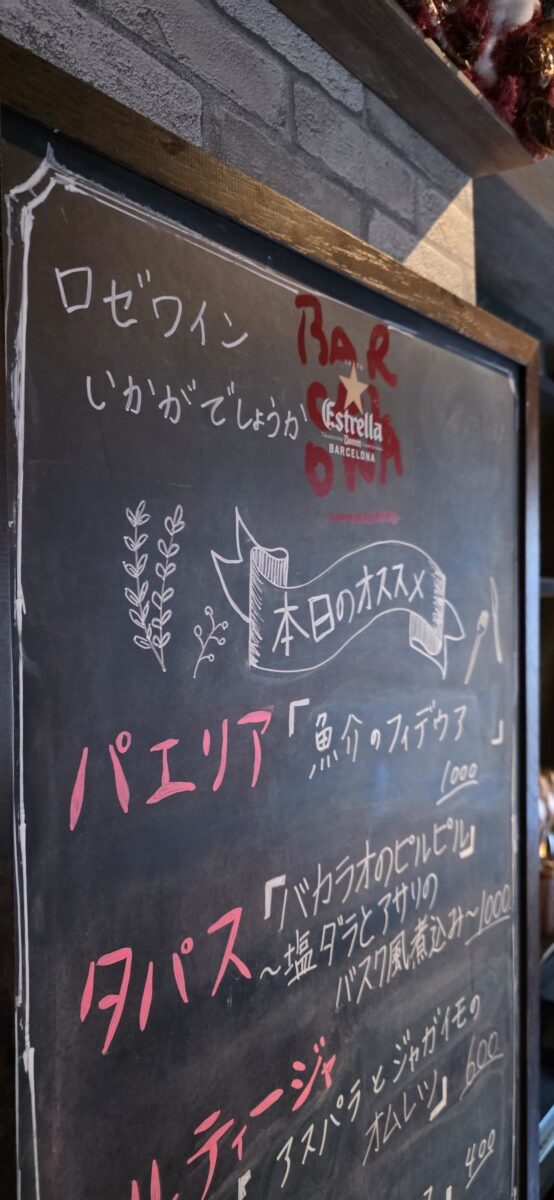 ロゼワイン
いかがでしょうか
BAR
Estrella
Damm
BARCELONA
本日のオススメ
パエリア「魚介のフィデウア」
1000
タパス「バカラオのピルピル」
~塩ダラとアサリの
バスク風煮込み~1000
ルティージャ
「アスパラとジャガイモの
オムレツ」600
400